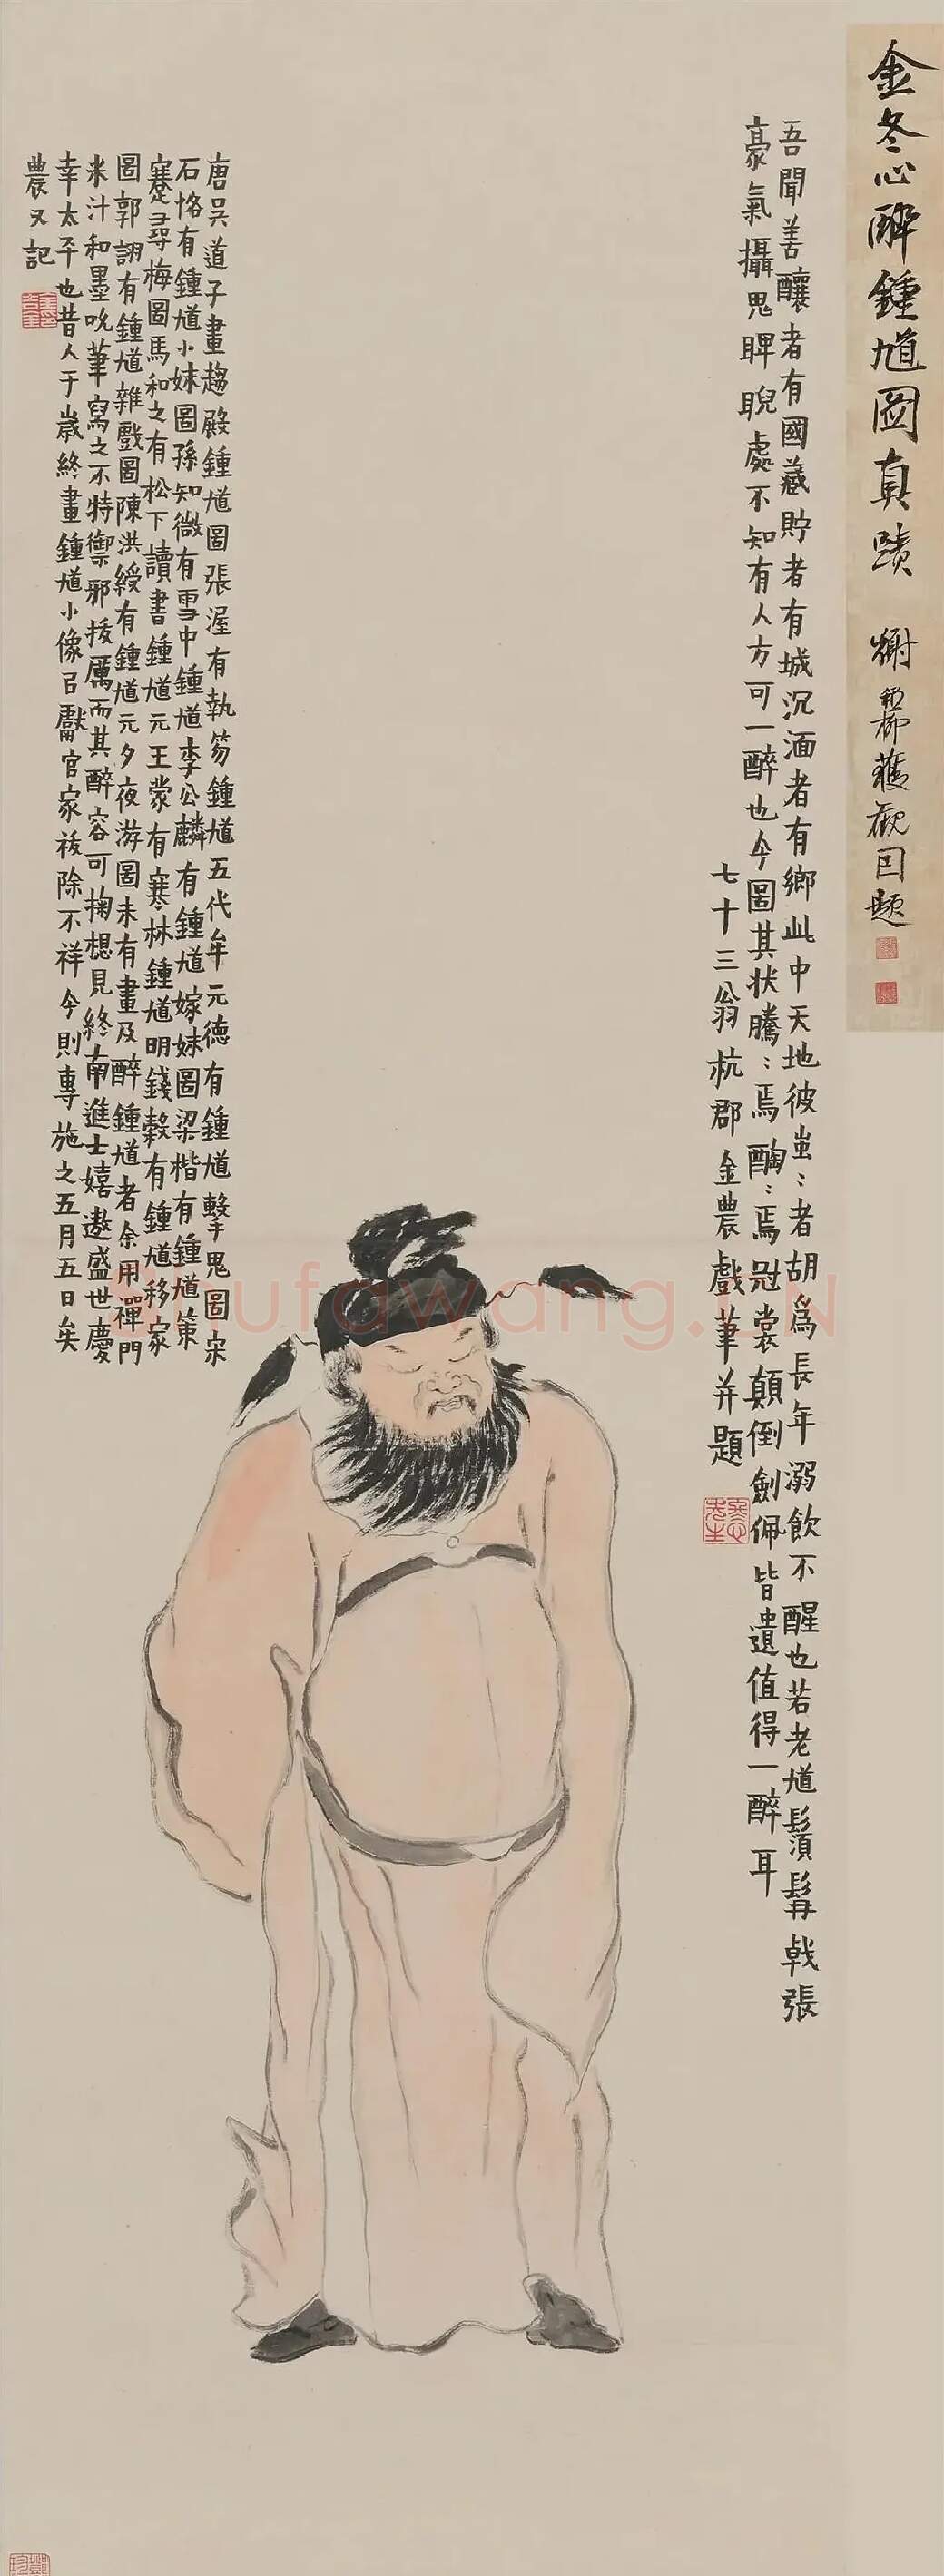 金冬心醉鍾馗圖真蹟 謝稚柳獲觀因題
吾聞善釀者有國藏貯者有城沉湎者有鄉此中天地彼蚩:者胡為長年溺飲不醒也若老馗鬚髯戟張
豪氣攝鬼睥睨處不知有人方可一醉也今圖其状騰:焉醄:焉冠裳顛倒劍佩皆遺值得一醉耳
七十三翁杭郡金農戲筆并題
冬心先生
唐吳道子畫趨殿鍾馗圖張渥有執笏鍾馗五代牟元德有鍾馗擊鬼圖宋
石恪有鍾馗小妹圖孫知微有雪中鍾馗李公麟有鍾馗嫁妹圖梁楷有鍾馗策
蹇尋梅圖馬和之有松下讀書鍾馗元王蒙有寒林鍾馗明錢穀有鍾馗移家
圖郭詡有鍾馗雜戲圖陳洪綬有鍾馗元夕夜游圖未有畫及醉鍾馗者余用禪門
米汁和墨吮筆寫之不特禦邪拔厲而其醉容可掬想見終南進士嬉遨盛世慶
幸太平也昔人于歲終畫鍾馗小像㠯獻官家祓除不祥今則專施之五月五日矣
農又記
Shufawang.CN